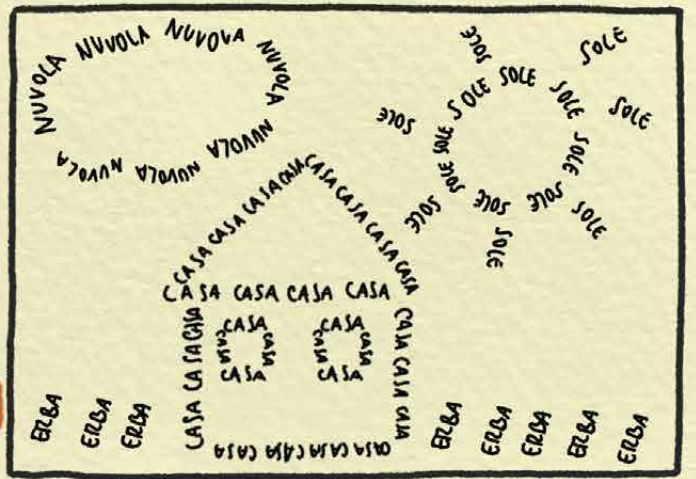 NUVOLA NUVOLA NUVOLA NUVOLA
NUVOLA NUVOLA NUVOLA NUVOLA
SOLE SOLE SOLE SOLE SOLE SOLE SOLE SOLE
SOLE
SOLE
SOLE
SOLE
SOLE
SOLE
SOLE
CASA CASA CASA CASA
CASA CASA CASA CASA
CASA CASA CASA CASA
CASA CASA CASA
CASA CASA CASA CASA
CASA CASA CASA CASA
CASA CASA CASA
CASA CASA CASA CASA CASA
ERBA ERBA ERBA
ERBA ERBA ERBA ERBA ERBA